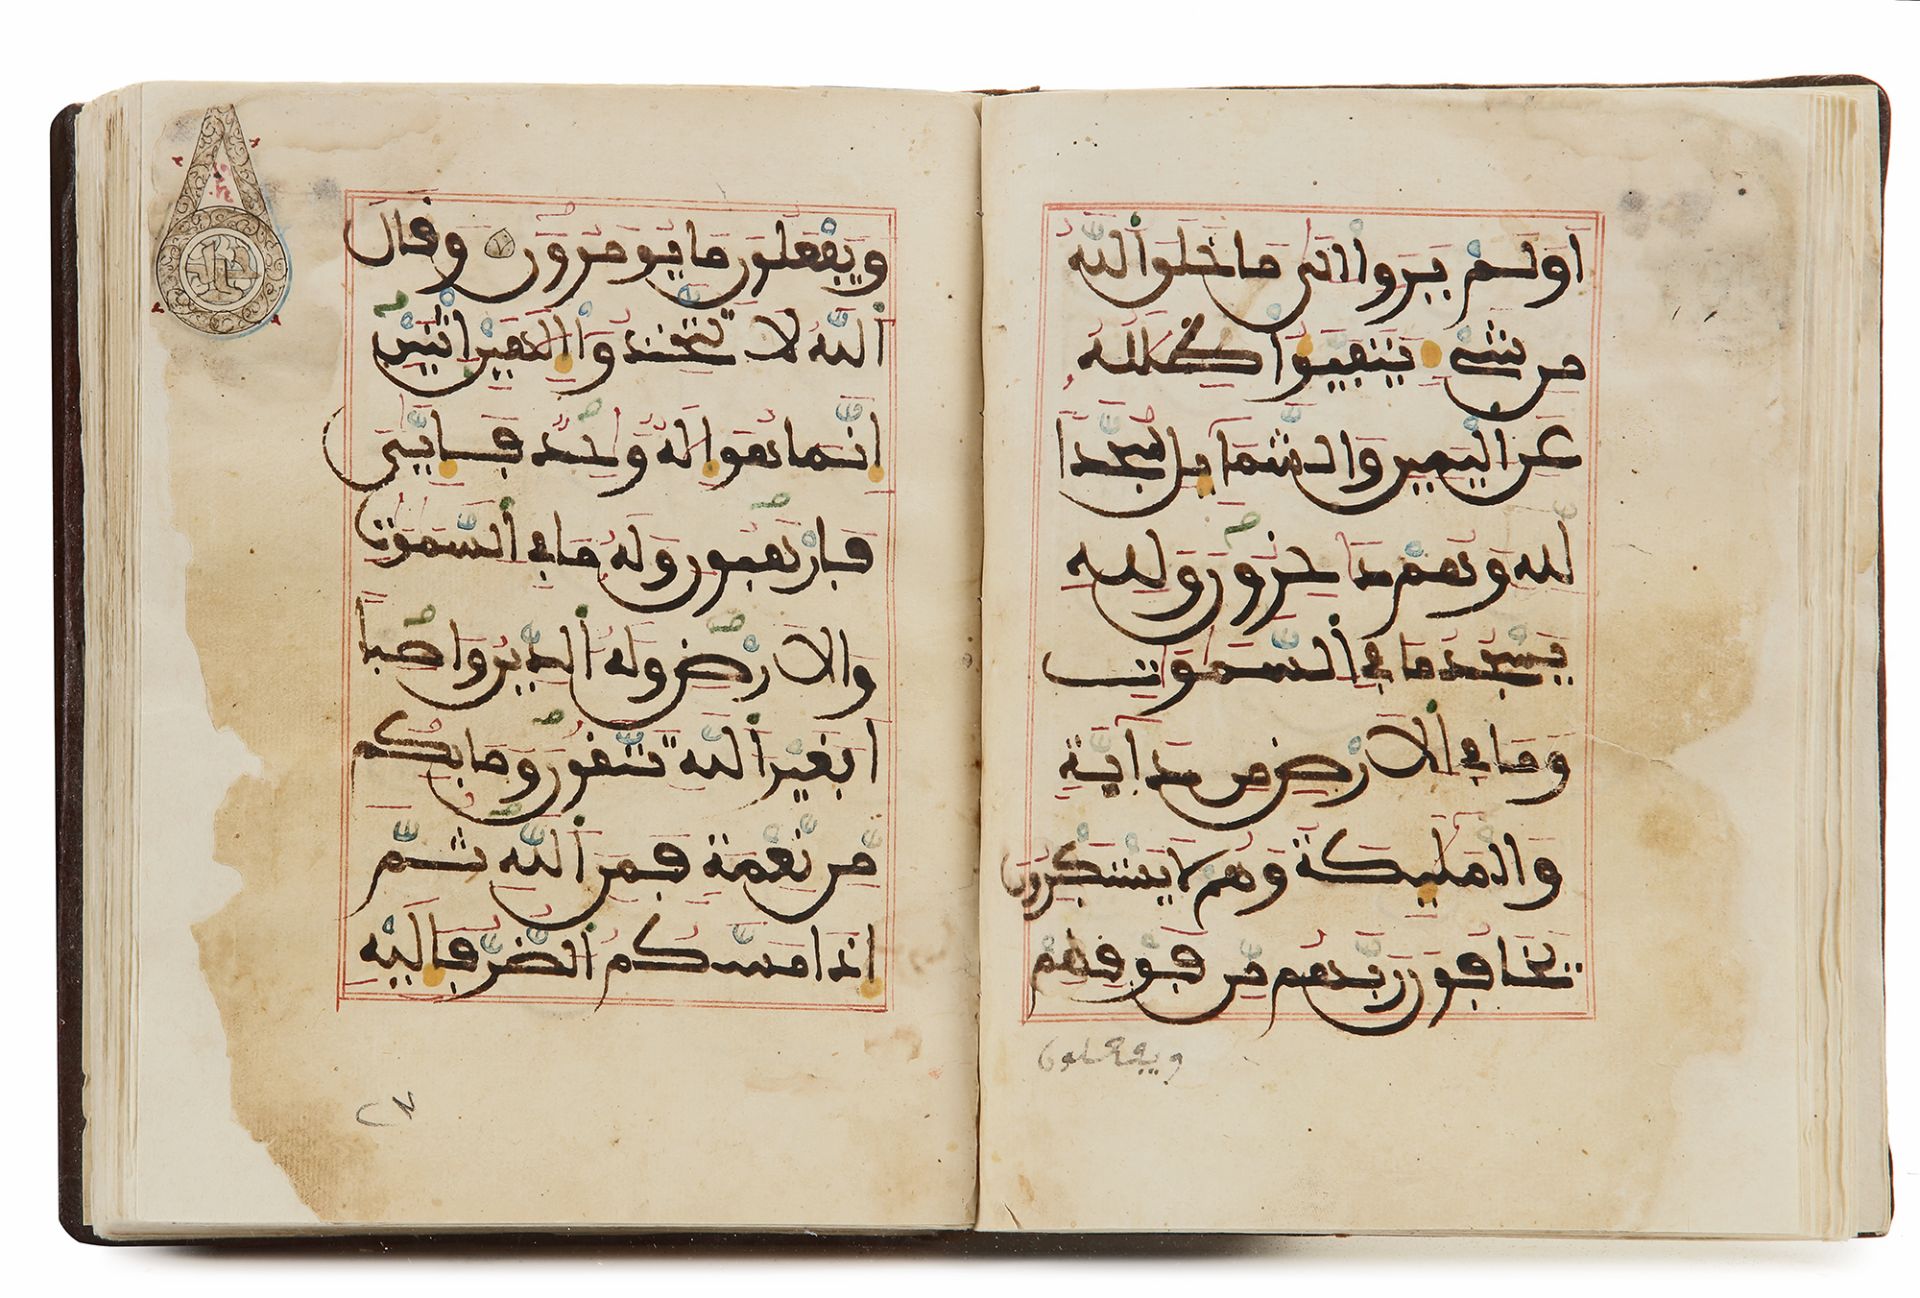 اَوَلَمْ يَرَوِا اِلَىٰ مَا خَلَقَ اَللَّهُ
مِن شَيْءٍ يَتَفَيَّؤُا ظِلَٰلُهُ
عَنِ اِلْيَمِينِ وَالشَّمَآئِلِ سُجَّدًا
لِلَّهِ وَهُمْ دَٰخِرُونَ وَلِلَّهِ
يَسْجُدُ مَا فِي اِلسَّمَٰوَٰتِ
وَمَا فِي اِلَارْضِ مِن دَآبَّةٍ
وَالْمَلَٰٓئِكَةُ وَهُمْ لَا يَسْتَكْبِرُونَ
يَخَافُونَ رَبَّهُم مِّن فَوْقِهِمْ
ويفعلون
وَيَفْعَلُونَ مَا يُومَرُونَ وَقَالَ
اَللَّهُ لَا تَتَّخِذُوٓا إِلَٰهَيْنِ اِثْنَيْنِ
إِنَّمَا هُوَ إِلَٰهٌ وَٰحِدٌ فَإِيَّٰيَ
فَارْهَبُونِ وَلَهُ مَا فِي اِلسَّمَٰوَٰتِ
وَالَارْضِ وَلَهُ اَلدِّينُ وَاصِبًا
اَفَغَيْرَ اَللَّهِ تَتَّقُونَ وَمَا بِكُم
مِّن نِّعْمَةٍ فَمِنَ اَللَّهِ ثُمَّ
إِذَا مَسَّكُمُ اُلضُّرُّ فَإِلَيْهِ